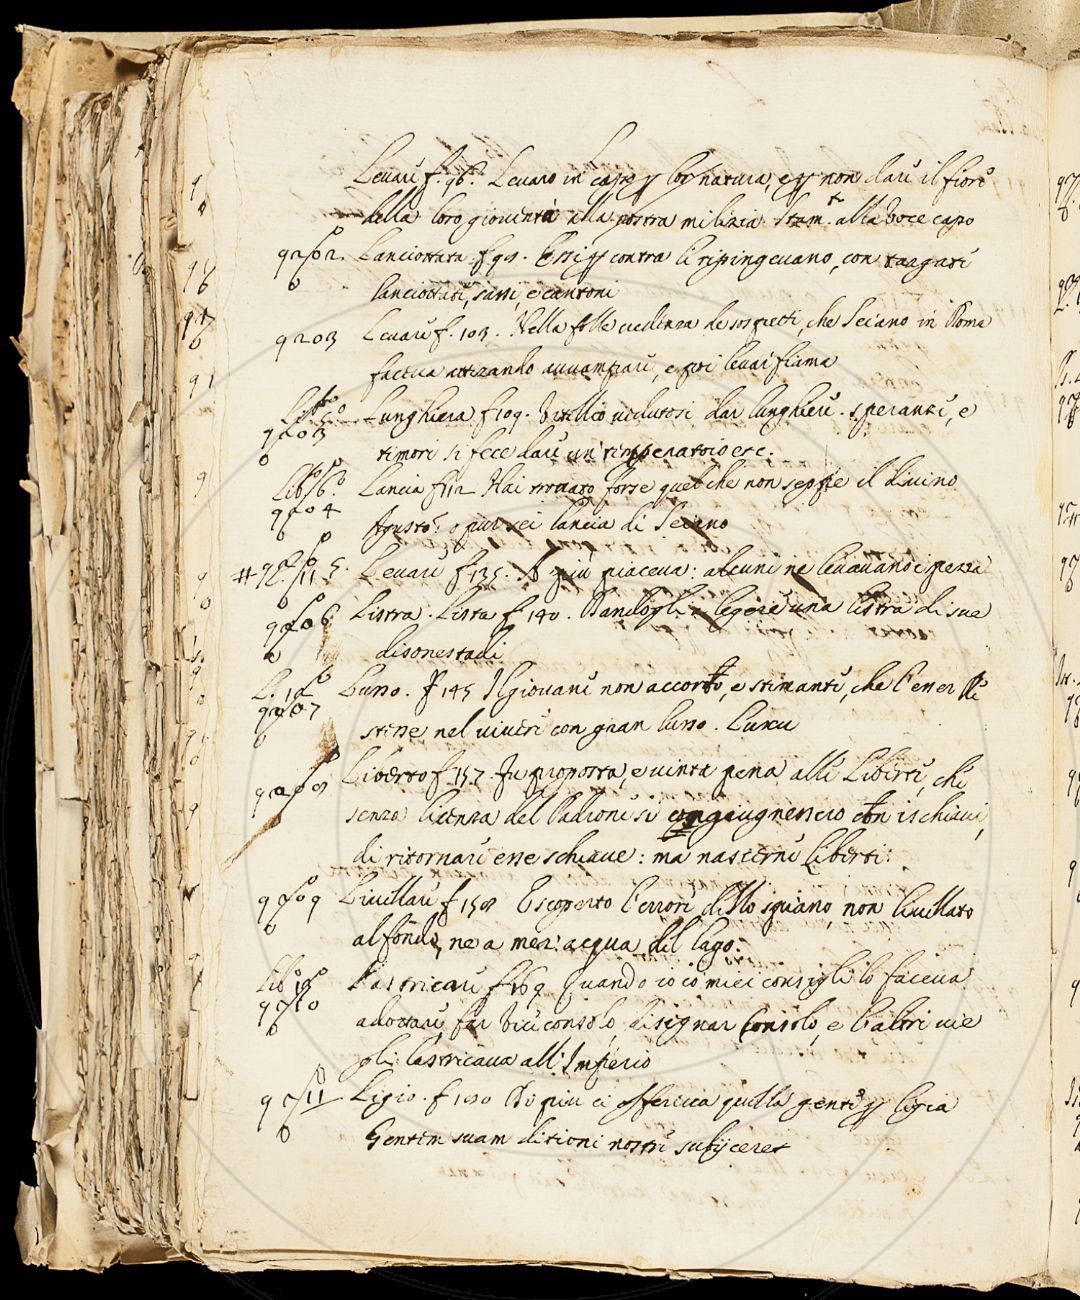 Levare f. 96. Levaro in capo p lor natura, e p non dare il fiore
della loro gioventù alla nostra milizia. Stam.te alla voce capo
Lanciottata. f. 98. Essi p contra li rispingevano, con targate
lanciottate, sassi, e cantoni
9203 Levare f. 103. Nella folle credenza de sospetti, che Seiano in Roma
faceva attizzando avvampare, e poi levar fiama
Lunghiera f. 109. Vitellio veduto si dar lunghiere. speranze, e
timori si fece dare un
Lib. 6. Lancia f. 112 Hai trovato forse quel che non seppe il divino
Agusto? o pur sei lancia di Seiano
Levare f. 135. A più piaceva: alcuni ne levavano i pezzi
Listra. Lista f. 140. leggere una listra di sue
disonestadi
Lusso. f. 145 Il giovane non accorto, e stimante, che l'esser
stesse nel vivere con gran lusso. Luxu
Liberto f. 157. Fu proposta, e vinta pena alle Liberte, che
senza licenza del Padrone si congiugnessero con ischiavi,
di ritornare esse schiave: ma nascerne liberti.
Livellare f. 158 E scoperto l'errore dello spiano, non livellato
al fondo, ne a mez: acqua del lago.
Lib. 12 Lastricare f. 169 Quando io co miei consigli lo faceva
adottare, far Viceconsolo, disignar Consolo, e l'altre vie
gli lastricava all'Imperio
Ligio. f. 180 Di piu ci offeriva quella gente p ligia
Gentem suam ditioni nostre subijceret